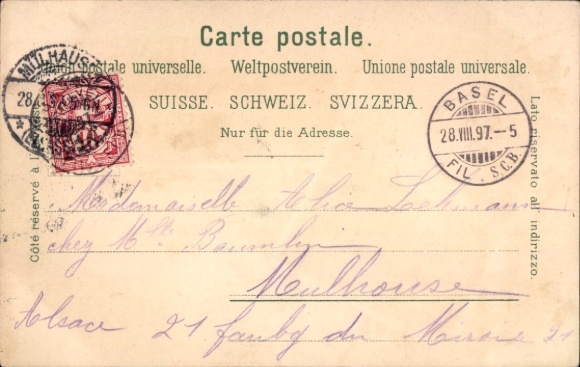 Carte postale.
Union postale universelle. Weltpostverein. Unione postale universale.
SUISSE. SCHWEIZ. SVIZZERA.
Nur für die Adresse.
Côté réservé à l'
Lato riservato all' indirizzo.
MÜLHAUSEN
28
BASEL
28.VIII.97.–5
FIL. S.C.B.
Mademoiselle Alice
chez Mlle Baumlin
Mulhouse
Alsace 21 faubg du Miroir 21